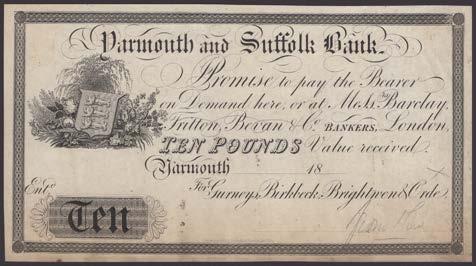 Yarmouth and Suffolk Bank.
Promise to pay the Bearer
on Demand here, or at Mess.rs Barclay,
Tritton, Bevan & Co. BANKERS, London,
TEN POUNDS Value received.
Yarmouth 18
For Gurneys, Birkbeck, Brightwen & Orde.
Entd.
Ten